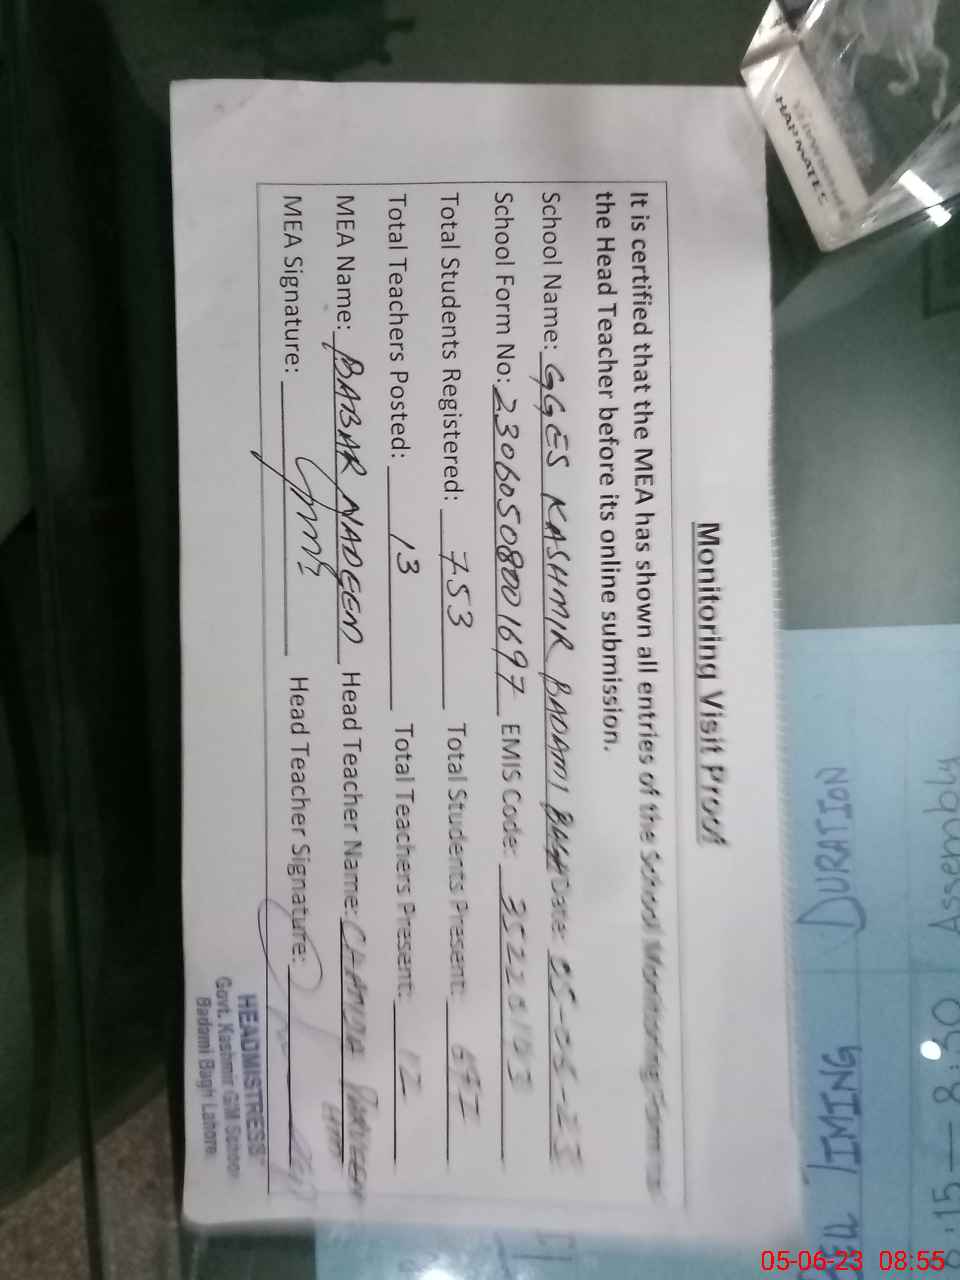 Monitoring Visit Proof
It is certified that the MEA has shown all entries of the School Monitoring Form to
the Head Teacher before its online submission.
School Name: GGES KASHMIR BADAMI BGH Date: 05-06-23
School Form No: 2306050800 1697 EMIS Code:
Total Students Registered: 753 Total Students Present: 697
Total Teachers Posted: 13 Total Teachers Present: 12
MEA Name: BABAR NADEEM Head Teacher Name: PARVEEN
MEA Signature: Head Teacher Signature:
HEADMISTRESS
Govt. Kashmir G/M School
Badami Bagh Lahore.
HANMATEC
DURATION
TIMING
Assembly
8:30
05-06-23 08:55